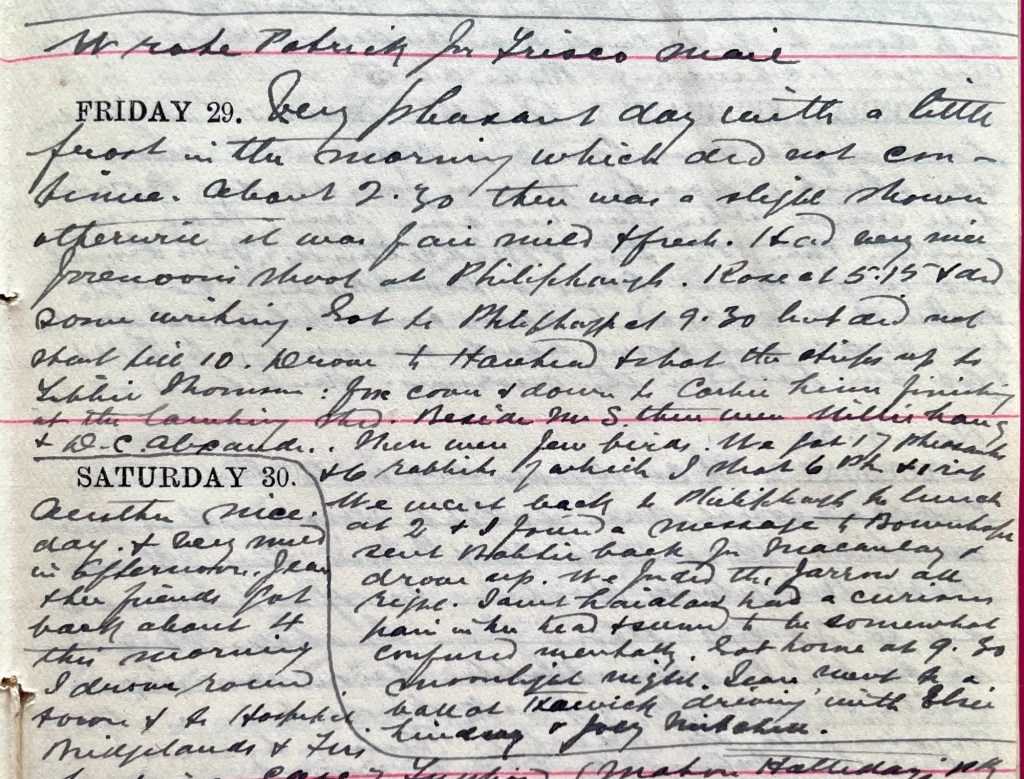 Wrote Patrick for Frisco mail
FRIDAY 29. Very pleasant day with a little
frost in the morning which did not con-
tinue. About 2.30 there was a slight shower
otherwise it was fair mild & fresh. Had very nice
forenoon's shoot at Philiphaugh. Rose at 5.15 & did
some writing. Got to Philiphaugh at 9.30 but did not
start till 10. Drove to & shot the strips up to
Tibbie Thomson: Fox & down to Corbie finishing
at the lambing shed. Beside Mr S. there were
& D.C. Alexander. There were few birds. We got 17 pheasants
& 6 rabbits of which I shot 6 Ph & 1 rab
We went back to Philiphaugh to lunch
at 2 & I found a message to Bowerhope
sent back for Macaulay &
drove up. We forded the Yarrow all
right. had a curious
pain in her head & seemed to be somewhat
confused mentally. Got home at 9.30
moonlight night. Jean went to a
ball at Hawick driving with Elsie
Lindsay & Joey Mitchell.
SATURDAY 30.
Another nice
day. & very mild
in afternoon. Jean
& her friends got
back about 4
this morning
I drove round
town & to Hospital
Bridgelands &